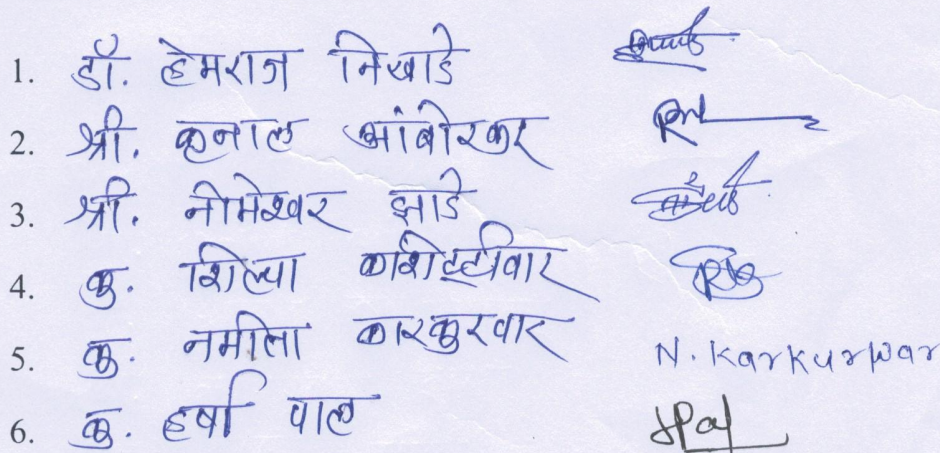 1. डॉ. हेमराज निखाडे
2. श्री. कुनाल आंबोरकर
3. श्री. नीमेश्वर झाडे
4. कु. शिल्पा काशेट्टीवार
5. कु. नमीता कारकुरवार N. Karkurwar
6. कु. हर्षा पाल HPal